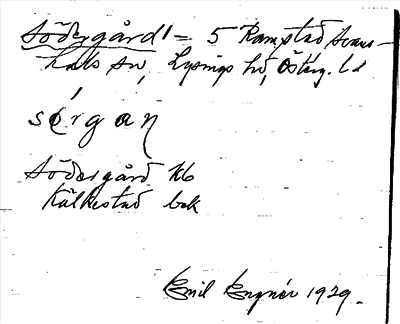 Södergård 1 = 5 Ramstad Svans-
hals sn, Lysings hd, Österg. ld
sǫ́rgaɳ
Södergård kb
Källestad bok
Emil Engnér 1929.